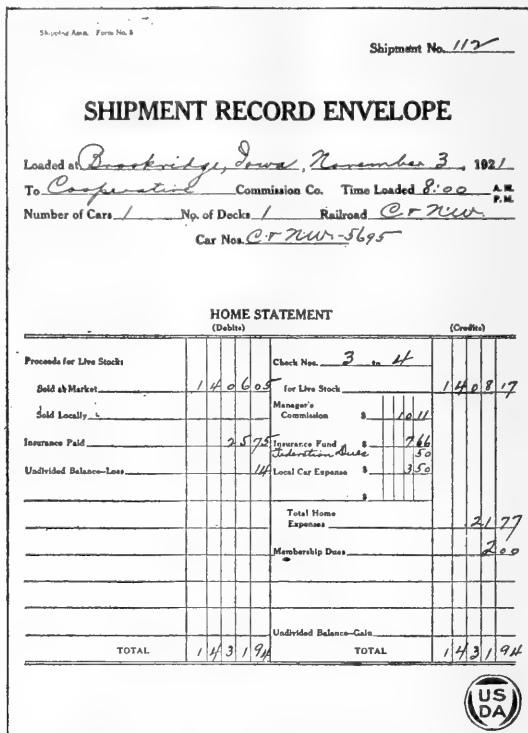 Shipping Assn. Form No. 5
Shipment No. 112
SHIPMENT RECORD ENVELOPE
Loaded at Brookridge, Iowa, November 3, 1921
To Cooperative Commission Co. Time Loaded 8:00 A.M. P.M.
Number of Cars 1 No. of Decks 1 Railroad C & N.W.
Car Nos. C & N.W.-5695
HOME STATEMENT
(Debits) (Credits)
Proceeds for Live Stock: Check Nos. 3 to 4
Sold at Market 1 4 0 6 05 for Live Stock 1 4 0 8 17
Sold Locally Manager's Commission $ 10 11
Insurance Paid 25 75 Insurance Fund $ 7 66
Federation Dues 50
Undivided Balance—Loss 14 Local Car Expense $ 3 50
$
Total Home Expenses 21 77
Membership Dues 2 00
Undivided Balance—Gain
TOTAL 1 4 3 1 94 TOTAL 1 4 3 1 94
US
DA